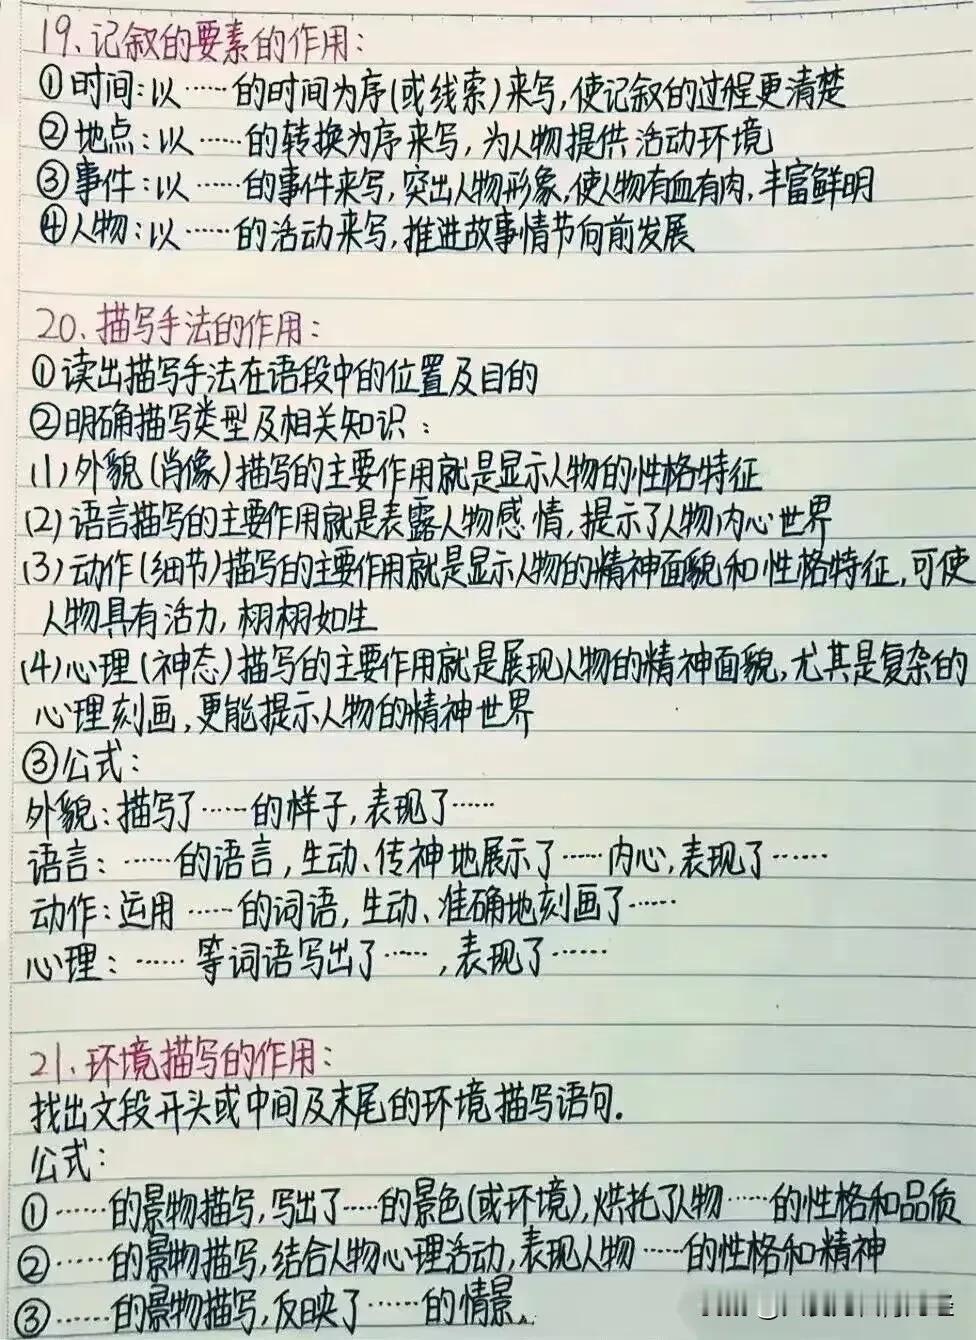 19、记叙的要素的作用：
①时间：以……的时间为序(或线索)来写，使记叙的过程更清楚
②地点：以……的转换为序来写，为人物提供活动环境
③事件：以……的事件来写，突出人物形象，使人物有血有肉，丰富鲜明
④人物：以……的活动来写，推进故事情节向前发展
20、描写手法的作用：
①读出描写手法在语段中的位置及目的
②明确描写类型及相关知识：
(1)外貌(肖像)描写的主要作用就是显示人物的性格特征
(2)语言描写的主要作用就是表露人物感情，提示了人物内心世界
(3)动作(细节)描写的主要作用就是显示人物的精神面貌和性格特征，可使
人物具有活力，栩栩如生
(4)心理(神态)描写的主要作用就是展现人物的精神面貌，尤其是复杂的
心理刻画，更能提示人物的精神世界
③公式：
外貌：描写了……的样子，表现了……
语言：……的语言，生动、传神地展示了……内心，表现了……
动作：运用……的词语，生动、准确地刻画了……
心理：……等词语写出了……，表现了……
21、环境描写的作用：
找出文段开头或中间及末尾的环境描写语句.
公式：
①……的景物描写，写出了……的景色(或环境)，烘托了人物……的性格和品质
②……的景物描写，结合人物心理活动，表现人物……的性格和精神
③……的景物描写，反映了……的情景.